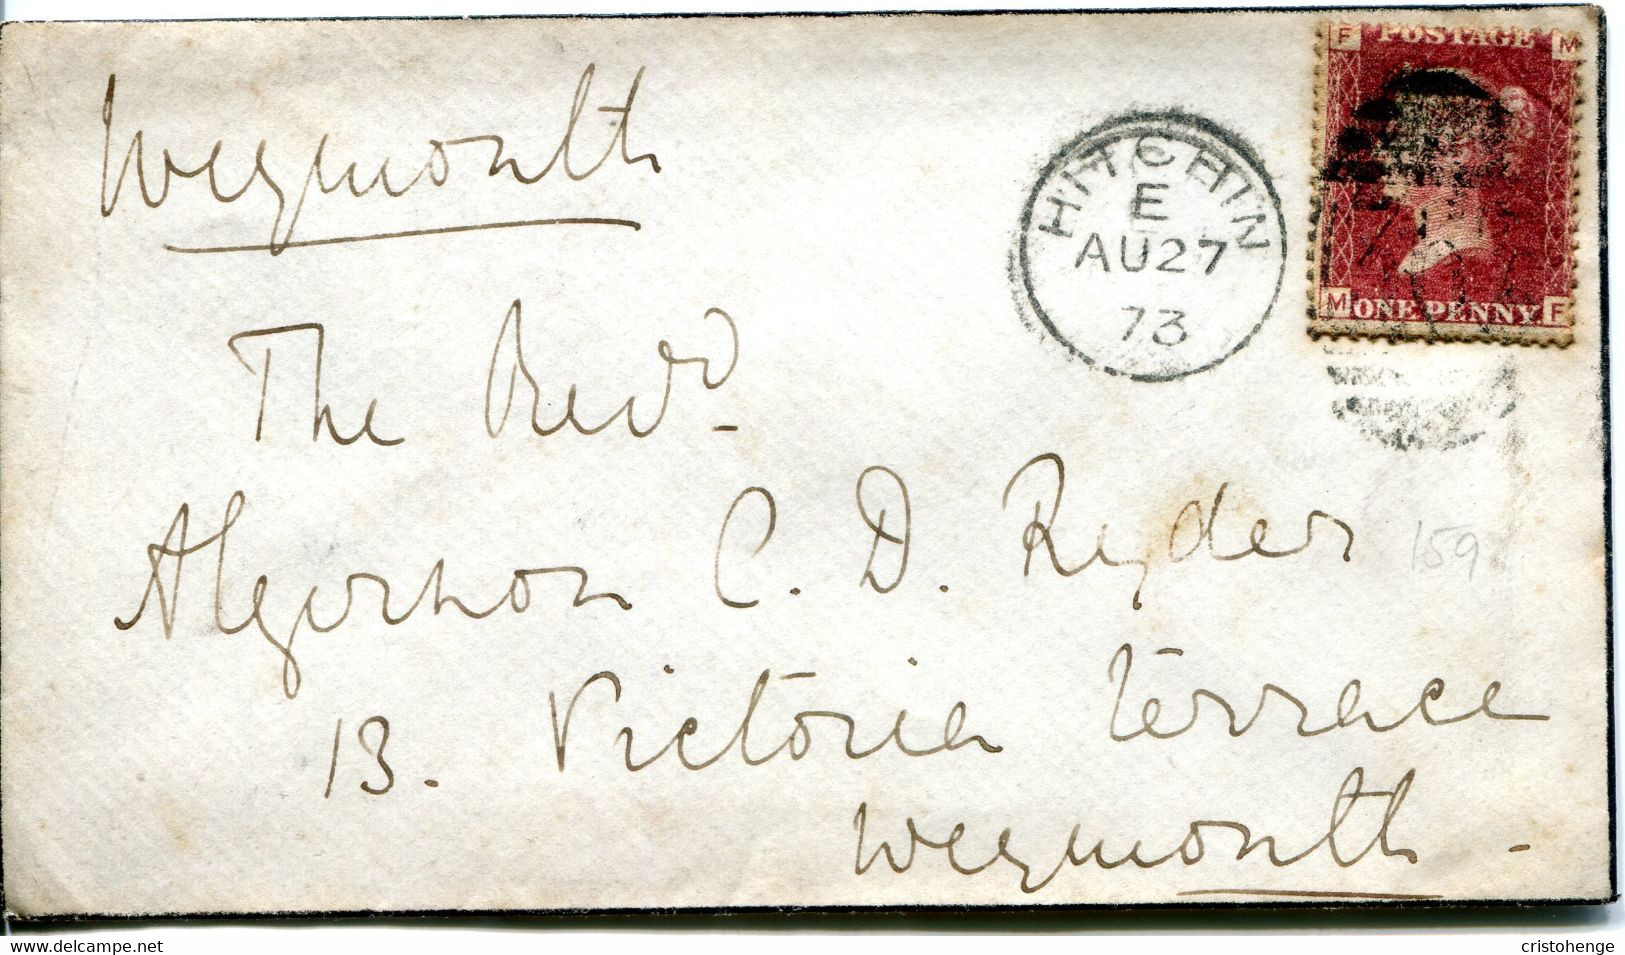 Weymouth
F POSTAGE M
HITCHIN
E
AU27
73
M ONE PENNY F
The Revd.
Algernon C. D. Ryder
159
13. Victoria Terrace
Weymouth -
www.delcampe.net
cristohenge